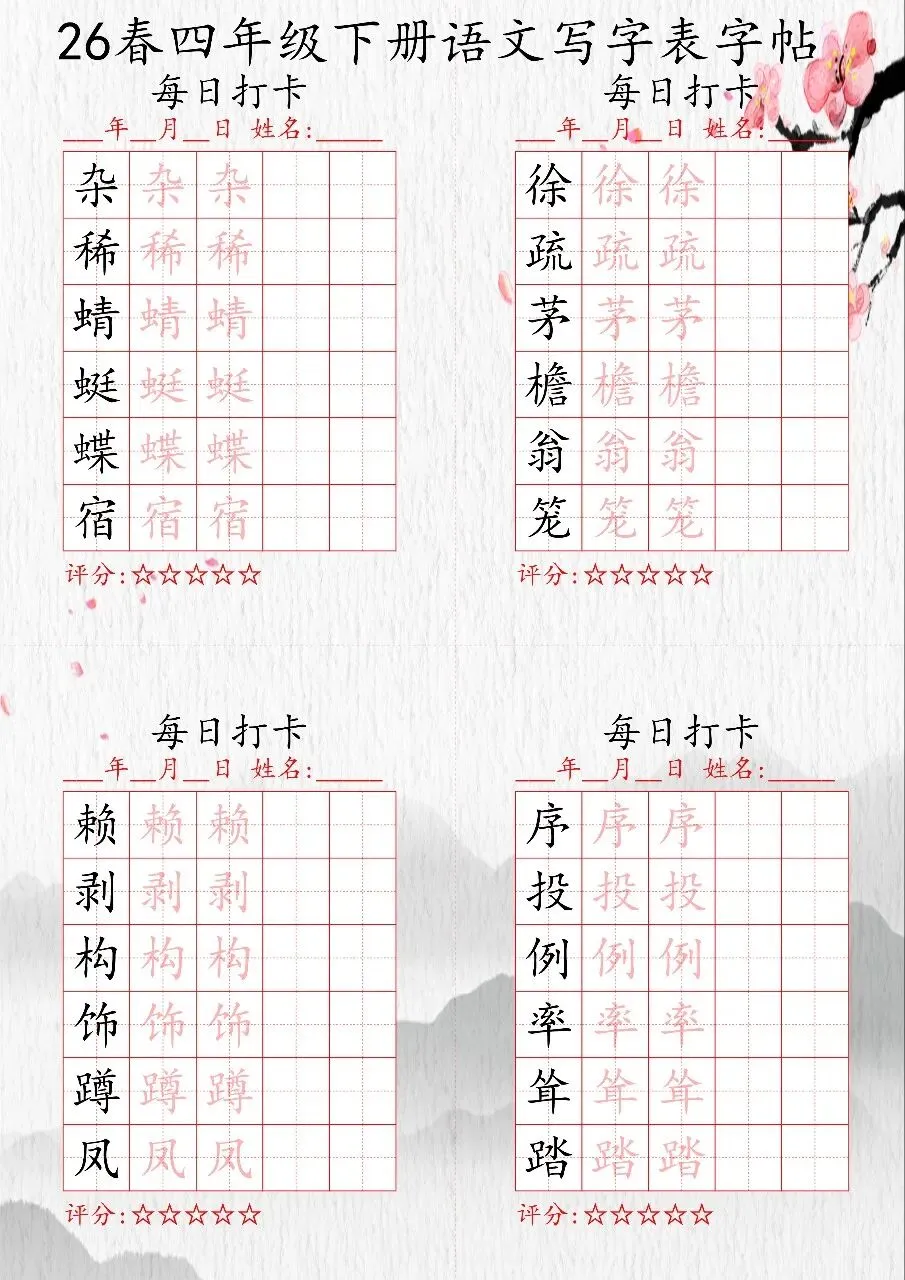 26春四年级下册语文写字表字帖
每日打卡
___年__月__日 姓名:_____
杂 杂 杂
稀 稀 稀
蜻 蜻 蜻
蜓 蜓 蜓
蝶 蝶 蝶
宿 宿 宿
评分:☆☆☆☆☆
每日打卡
___年__月__日 姓名:_____
徐 徐 徐
疏 疏 疏
茅 茅 茅
檐 檐 檐
翁 翁 翁
笼 笼 笼
评分:☆☆☆☆☆
每日打卡
___年__月__日 姓名:_____
赖 赖 赖
剥 剥 剥
构 构 构
饰 饰 饰
蹲 蹲 蹲
凤 凤 凤
评分:☆☆☆☆☆
每日打卡
___年__月__日 姓名:_____
序 序 序
投 投 投
例 例 例
率 率 率
耸 耸 耸
踏 踏 踏
评分:☆☆☆☆☆